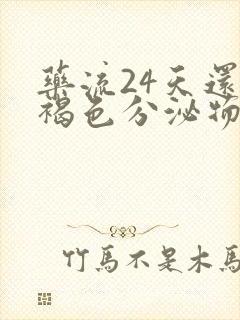 藥流24天還
褐色分泌物
竹馬不是木馬